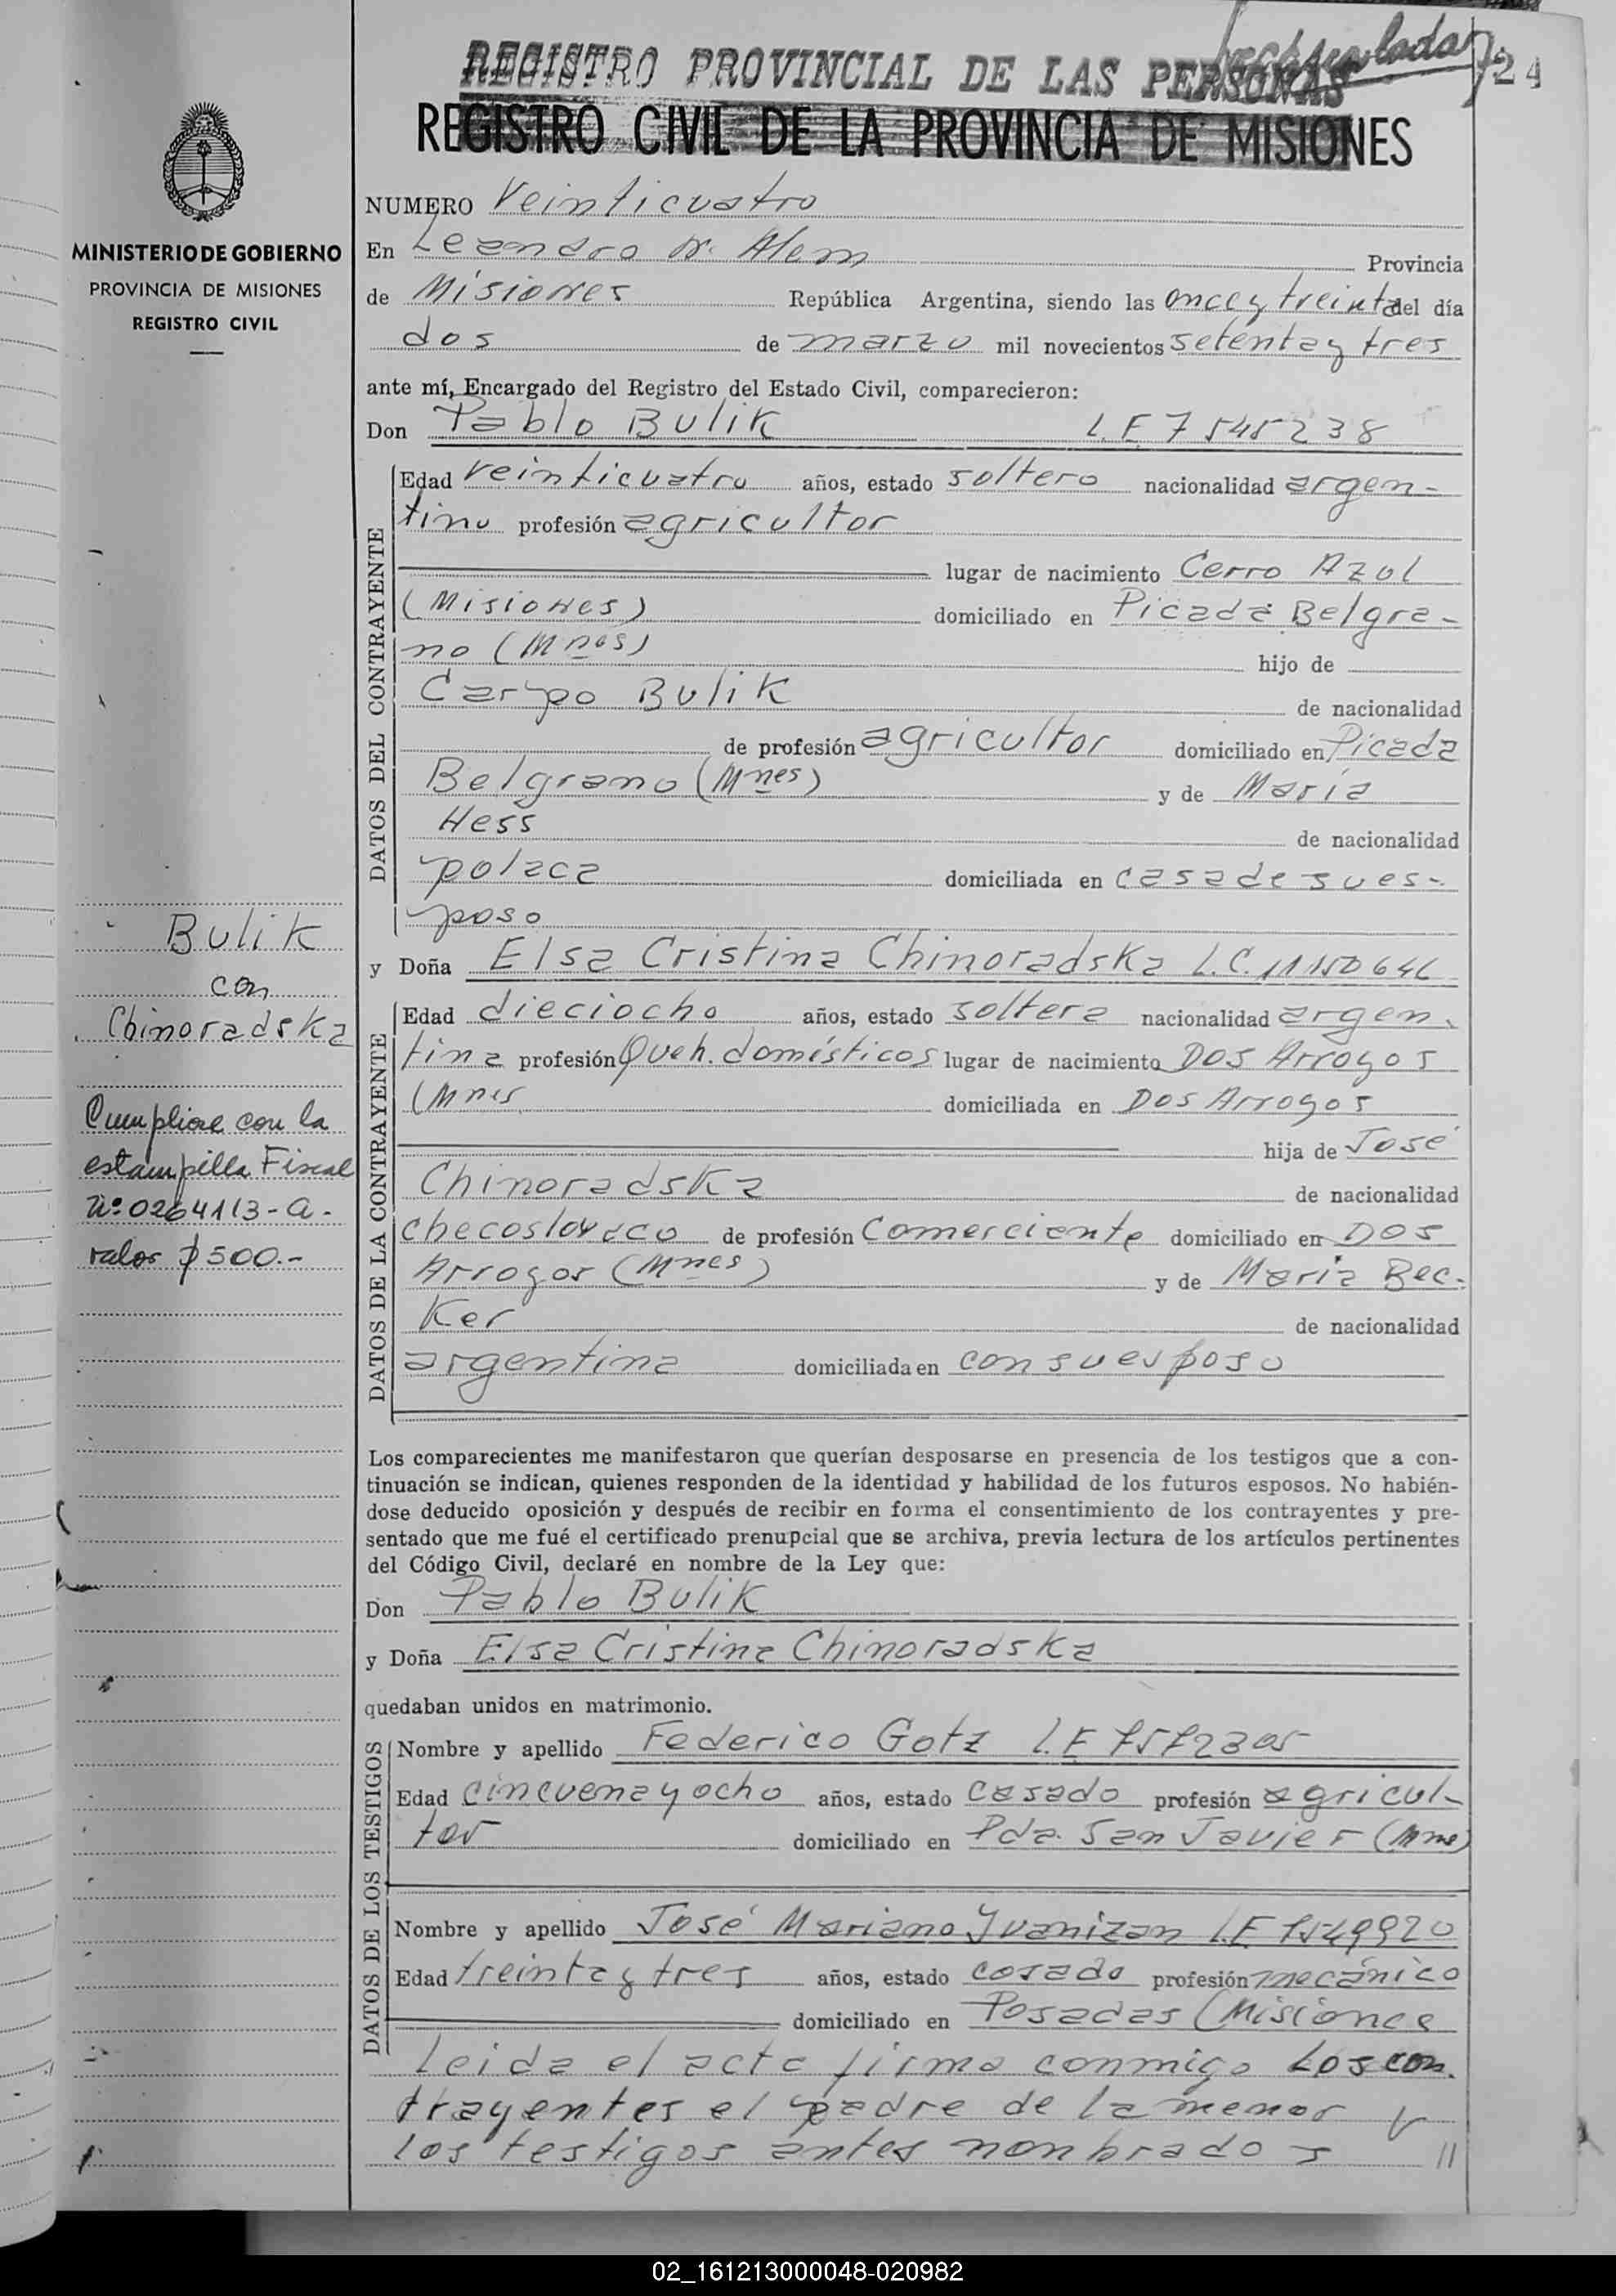 REGISTRO PROVINCIAL DE LAS PERSONAS
24
REGISTRO CIVIL DE LA PROVINCIA DE MISIONES
MINISTERIO DE GOBIERNO
PROVINCIA DE MISIONES
REGISTRO CIVIL
NUMERO Veinticuatro
En Leandro N. Alem Provincia
de Misiones República Argentina, siendo las once y treinta del día
dos de marzo mil novecientos setenta y tres
ante mí, Encargado del Registro del Estado Civil, comparecieron:
Don Pablo Bulik L.E 7545238
DATOS DEL CONTRAYENTE
Edad veinticuatro años, estado soltero nacionalidad argen-
tino profesión agricultor
lugar de nacimiento Cerro Azul
(Misiones) domiciliado en Picada Belgra-
no (Mnes) hijo de
Carpo Bulik de nacionalidad
de profesión agricultor domiciliado en Picada
Belgrano (Mnes) y de María
Hess de nacionalidad
polaca domiciliada en casa de su es-
poso
y Doña Elsa Cristina Chinoradska L.C. 11150646
DATOS DE LA CONTRAYENTE
Edad dieciocho años, estado soltera nacionalidad argen-
tina profesión Queh. domésticos lugar de nacimiento Dos Arroyos
(Mnes domiciliada en Dos Arroyos
hija de José
Chinoradska de nacionalidad
checoslovaco de profesión Comerciante domiciliado en Dos
Arroyos (Mnes) y de María Bec-
Ker de nacionalidad
argentina domiciliada en con su esposo
Bulik
con
Chinoradska
Cumpliose con la
estampilla Fiscal
Nº 0264113-a-
valor $ 500.-
Los comparecientes me manifestaron que querían desposarse en presencia de los testigos que a con-
tinuación se indican, quienes responden de la identidad y habilidad de los futuros esposos. No habién-
dose deducido oposición y después de recibir en forma el consentimiento de los contrayentes y pre-
sentado que me fué el certificado prenupcial que se archiva, previa lectura de los artículos pertinentes
del Código Civil, declaré en nombre de la Ley que:
Don Pablo Bulik
y Doña Elsa Cristina Chinoradska
quedaban unidos en matrimonio.
DATOS DE LOS TESTIGOS
Nombre y apellido Federico Gotz L.E 7572305
Edad cincuenayocho años, estado casado profesión agricul-
tor domiciliado en Pda. San Javier (Mnes)
Nombre y apellido José Mariano Yvanizan L.E 7549920
Edad treinta y tres años, estado casado profesión mecánico
domiciliado en Posadas (Misiones
Leida el acta firma conmigo los con-
trayentes el padre de la menor y
los testigos antes nonbrados //
02_161213000048-020982